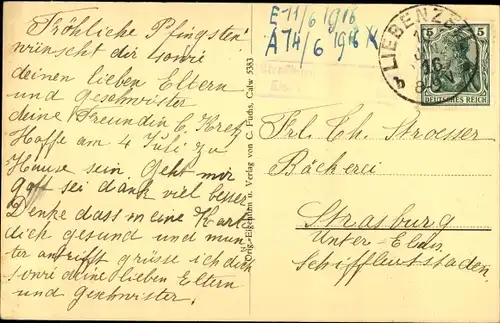 Fröhliche Pfingsten
wünscht dir sowie
deinen lieben Eltern
und Geschwister
deine Freundin C. Krez
Hoffe am 4 Juli zu
Hause sein. Geht mir
gott sei dank viel besser
Denke dass meine Karte
dich gesund und mun
ter antrifft grüsse ich dich
sowie deine lieben Eltern
und Geschwister.
Orig.-Eigentum u. Verlag von C. Fuchs, Calw 5383
E 11/6 1916
A 14/6 1916 K
LIEBENZELL
16
5 5
DEUTSCHES REICH
Frl. Ch. Stroesser
Bäckerei
Strasburg
Unter-Elsass
Schiffleutstaden.